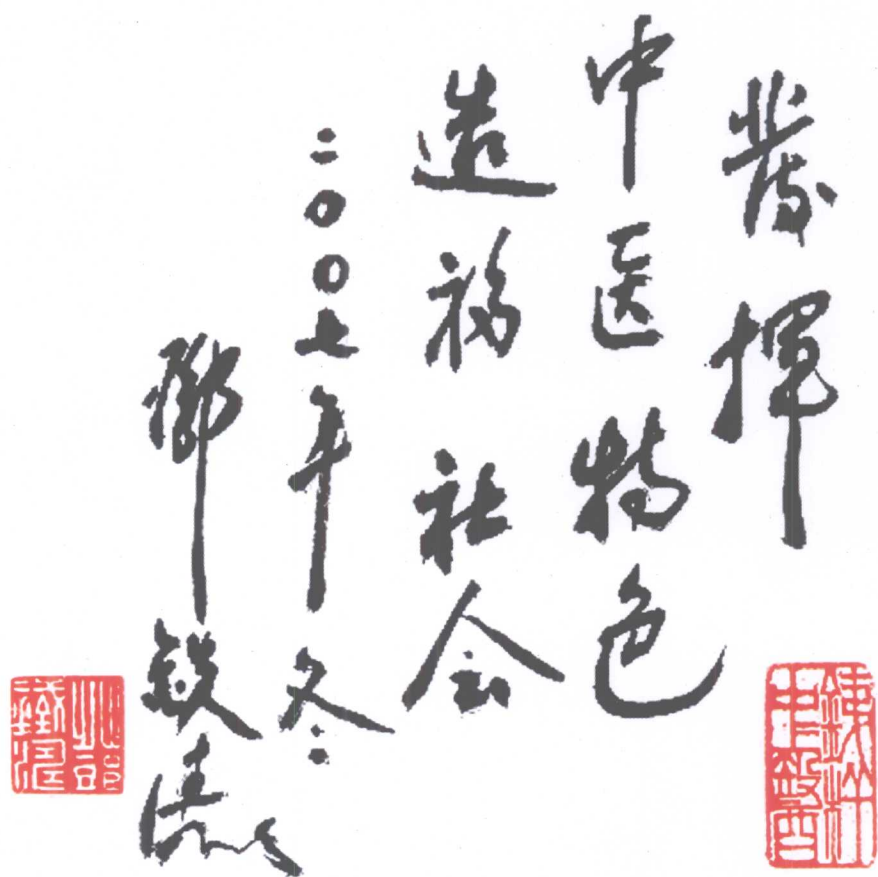 發揮
中医特色
造福社会
二00七年冬
鄧鉄涛